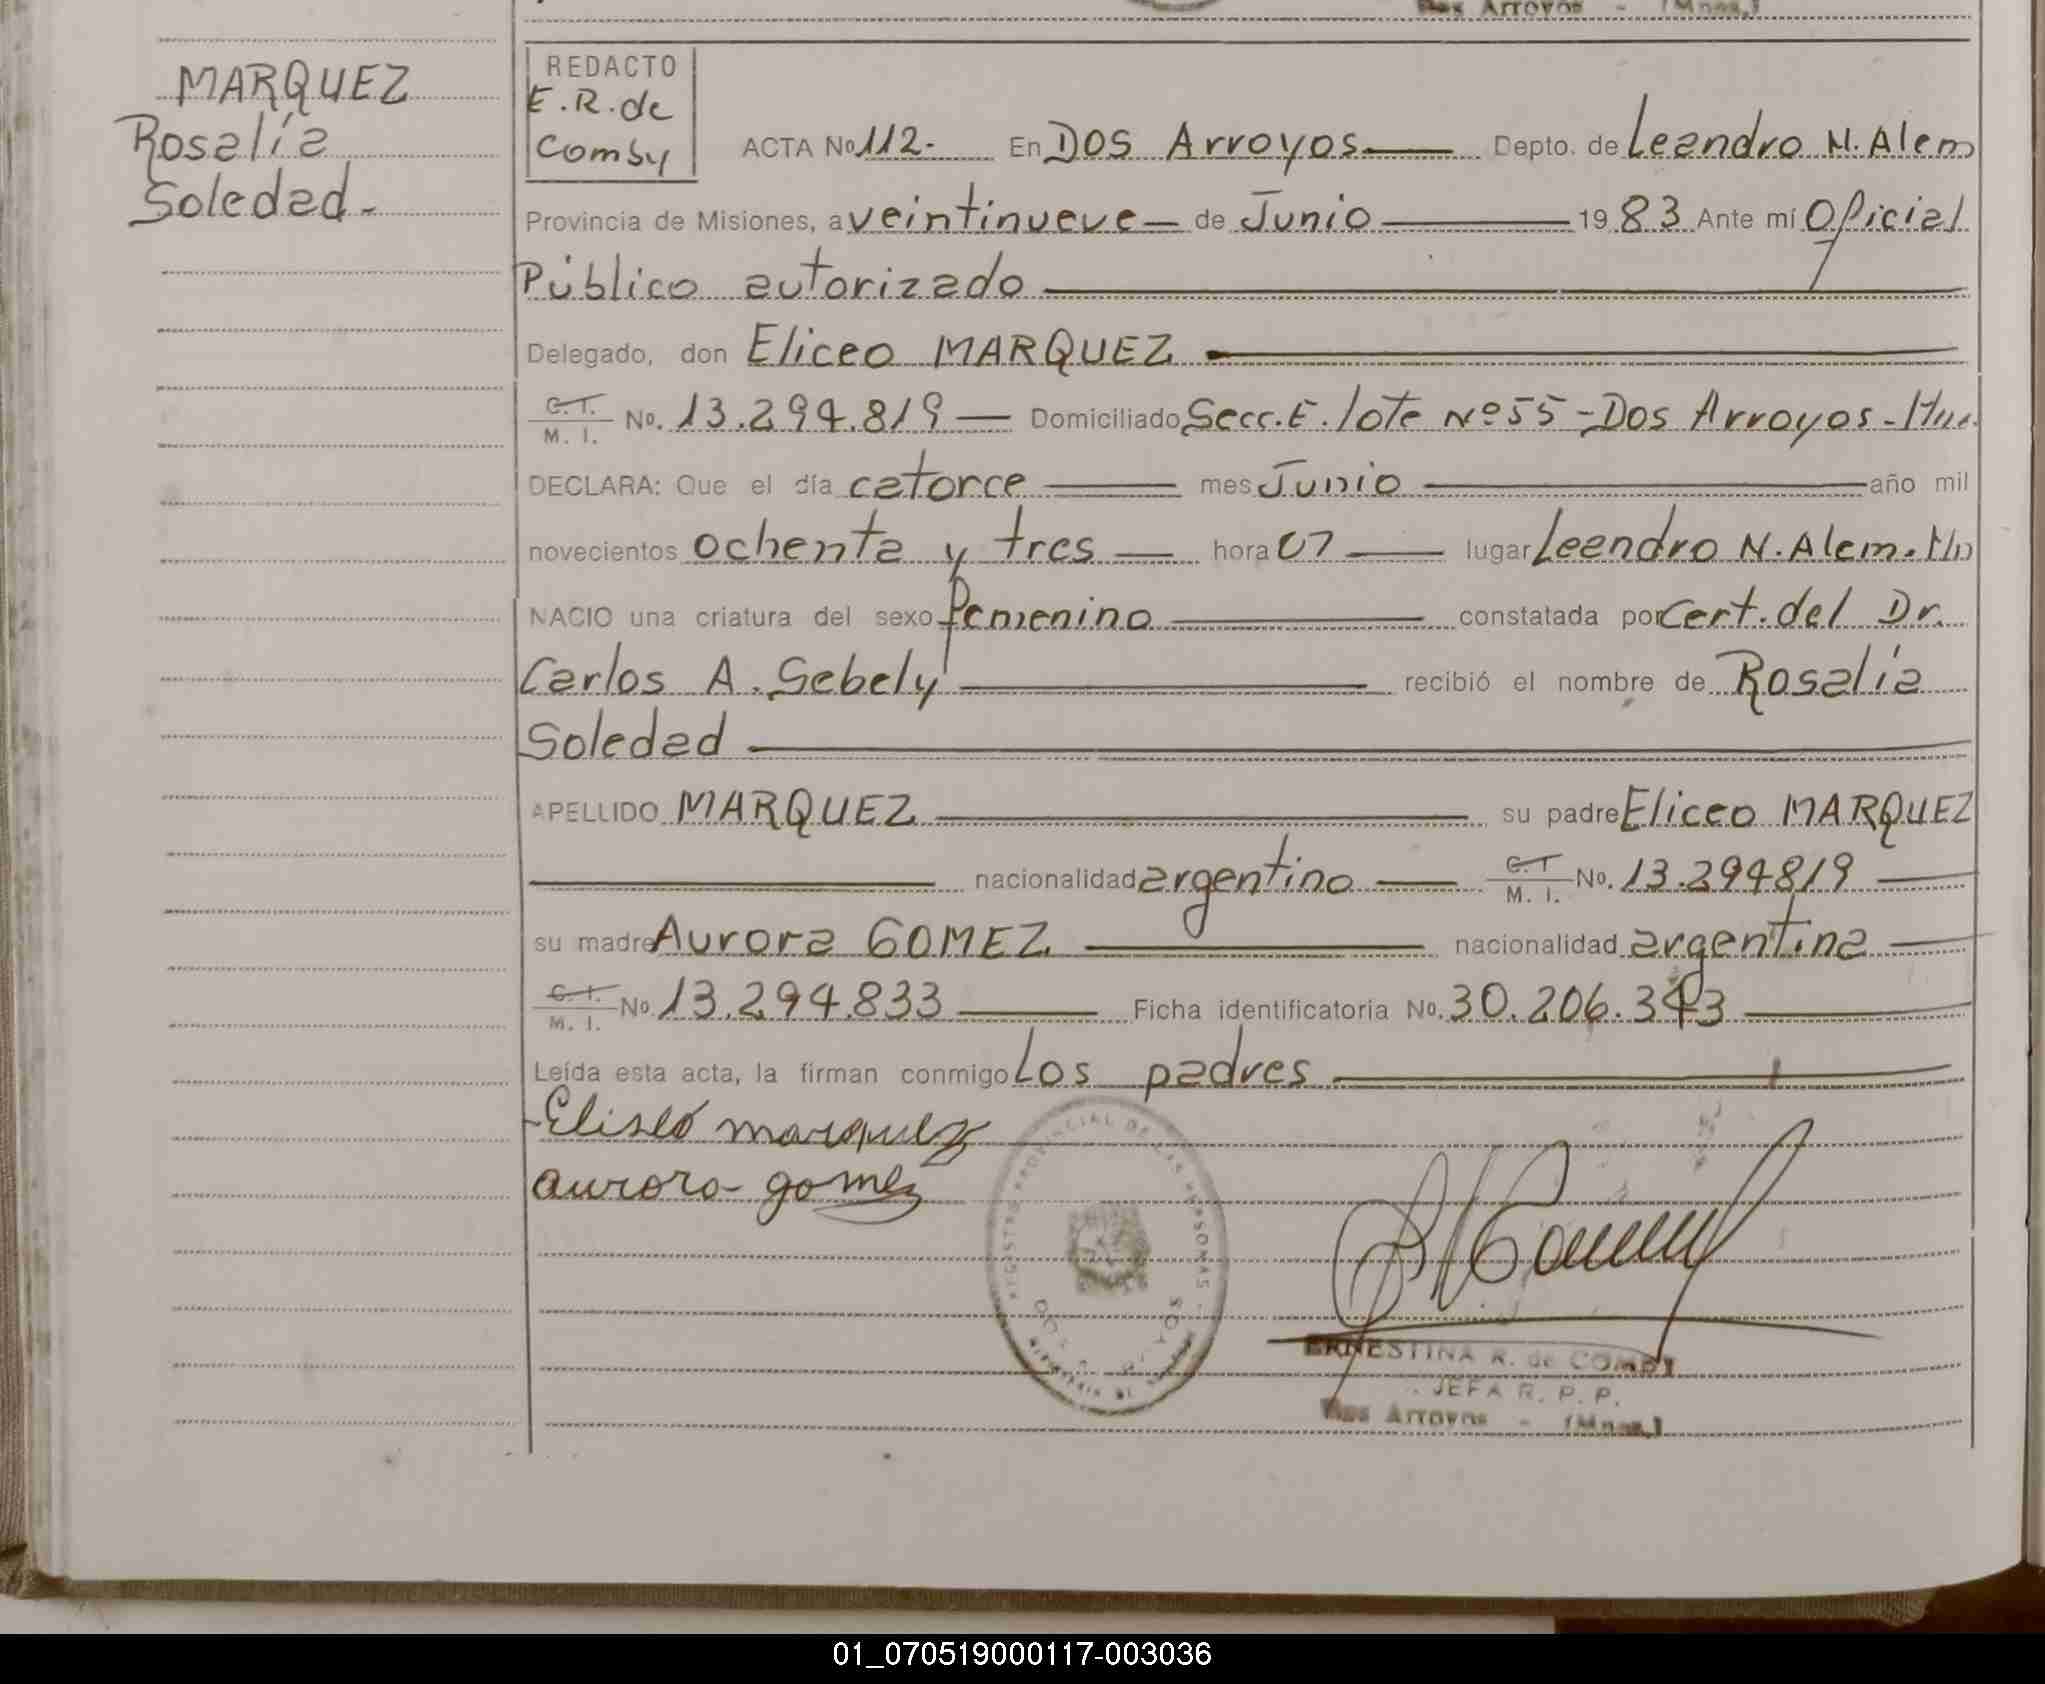 Dos Arroyos - (Mnes.)
MARQUEZ
Rosalía
Soledad -
REDACTO
E.R. de
Comby
ACTA No 112.- En DOS Arroyos Depto. de Leandro N. Alem
Provincia de Misiones, a veintinueve de Junio 1983 Ante mí Oficial
Público autorizado
Delegado, don Eliceo MARQUEZ
C.I. M. I. No. 13.294.819 Domiciliado Secc. E. lote Nº 55 - Dos Arroyos -
DECLARA: Que el día catorce mes Junio año mil
novecientos ochenta y tres hora 07 lugar Leandro N. Alem.
NACIO una criatura del sexo femenino constatada por Cert. del Dr.
Carlos A. Sebely recibió el nombre de Rosalía
Soledad
APELLIDO MARQUEZ su padre Eliceo MARQUEZ
nacionalidad argentino C.I M. I. No. 13.294819
su madre Aurora GOMEZ nacionalidad argentina
C.I. M. I. No 13.294.833 Ficha identificatoria No. 30.206.343
Leída esta acta, la firman conmigo Los padres
Eliseo marquez
aurora gomez
REGISTRO PROVINCIAL DE LAS PERSONAS
ERNESTINA R. de COMBY
JEFA R. P. P.
Dos Arroyos - (Mnes.)
01_070519000117-003036